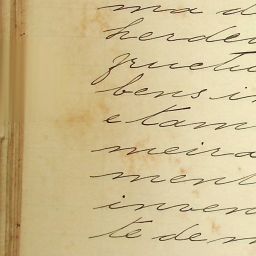 ma d
herdei
fructu
bens i
e tam
meira
ment
inven
te dem